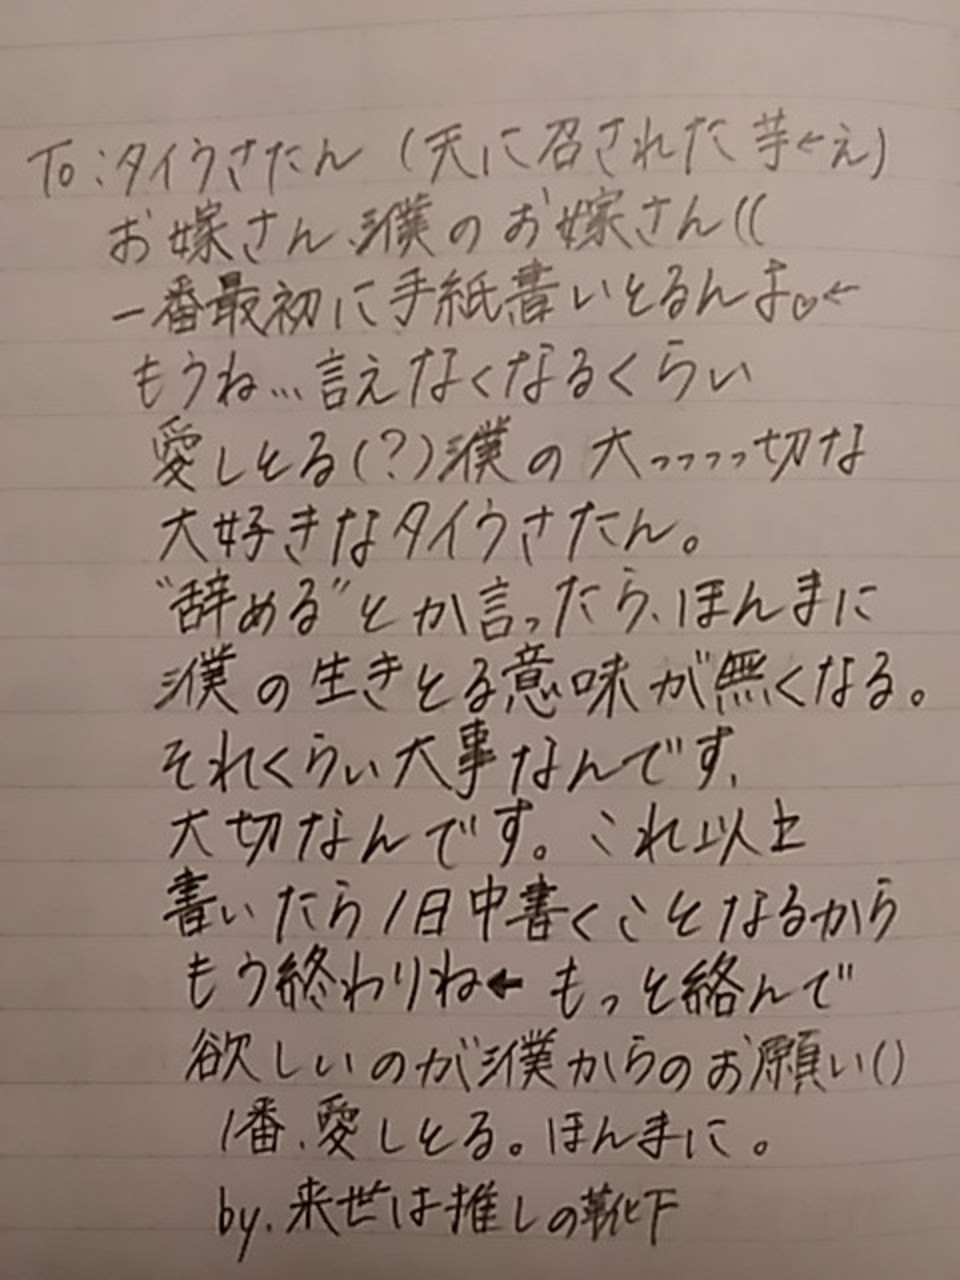 To:タイウさたん (天に召された芋←え)
お嫁さん、濮のお嫁さん((
一番最初に手紙書いとるんよ♡←
もうね…言えなくなるくらい
愛しとる(?)濮の大っっっっ切な
大好きなタイウさたん。
"辞める"とか言ったら、ほんまに
濮の生きとる意味が無くなる。
それくらい大事なんです、
大切なんです。これ以上
書いたら1日中書くことなるから
もう終わりね← もっと絡んで
欲しいのが濮からのお願い()
1番、愛しとる。ほんまに。
by.来世は推しの靴下